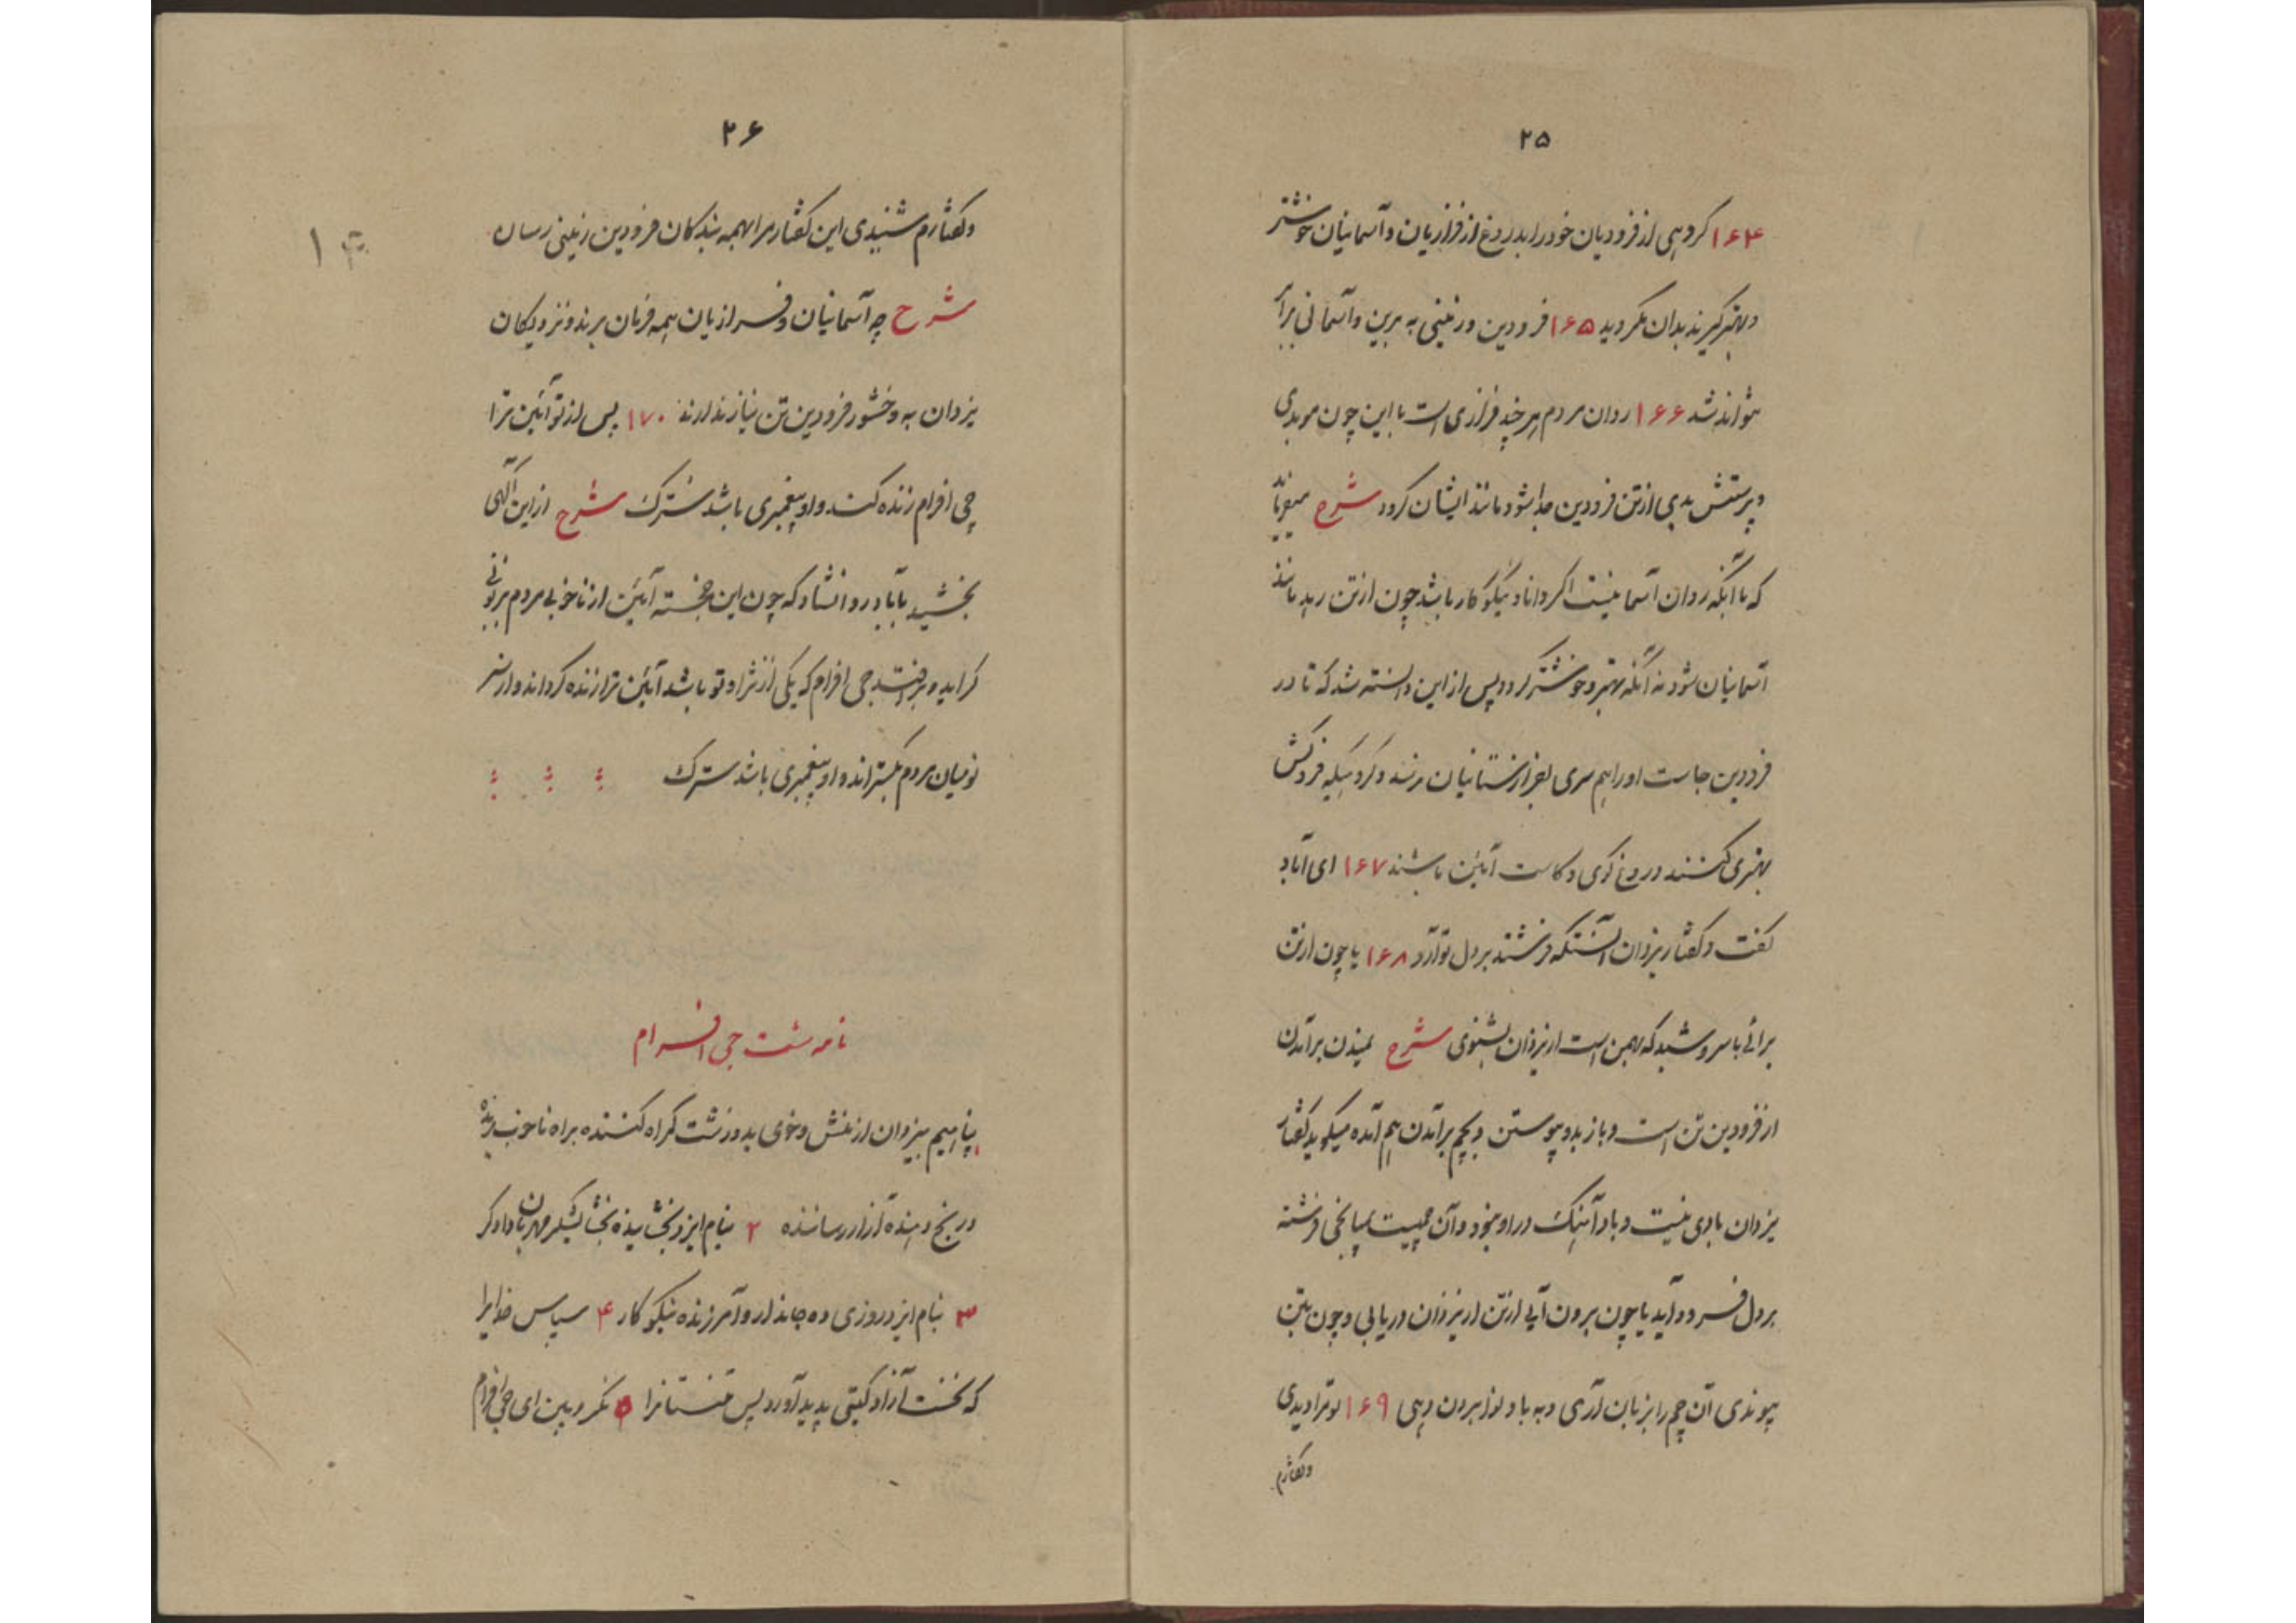 ۲۵
۱۶۴ گروهی از فرودیان خود را بدروغ از فرازیان و آسمانیان خوشتر
و بهتر گیرند بدان مگروید ۱۶۵ فرودین و زمینی به برین و آسمانی برابر
نتواند شد ۱۶۶ روان مردم هر چند فرازی است با این چون موبدی
و پرستش بدی از تن فرودین جدا شود مانند ایشان گردد شرح میفرماید
که با آنکه روان آسمانیست اگر دانا و نیکوکار باشد چون از تن رهد مانند
آسمانیان شود نه آنکه بهتر و خوشتر گردد پس از این دانسته شد که تا در
فرودین جاست او را همسری بفرازستانیان نرسد و گروهیکه فروکش
بهتری کنند دروغ گوی و کاست آئین باشند ۱۶۷ ای آباد
گفت و گفتار یزدان آنستکه فرشته بر دل تو آرد ۱۶۸ یا چون از تن
برائی با سروشبد که بهمن است از یزدان بشنوی شرح نمیدن برآمدن
از فرودین تن است و باز بدو پیوستن و بچم برآمدن هم آمده میگوید گفتار
یزدان بادی نیست و باد آهنگ در او نبود و آن چمیست بمیانجی فرشته
بر دل فرود آید یا چون برون آیی از تن از یزدان دریابی و چون بتن
پیوندی آن چم را بزبان آری و به باد لوز برون دهی ۱۶۹ تو مرا دیدی
و گفتارم
۲۶
و گفتارم شنیدی این گفتار مرا بهمه بندگان فرودین زمینی رسان
شرح چه آسمانیان و فرازیان همه فرمان برند و نزدیکان
یزدان به وخشور فرودین تن نیاز ندارند ۱۷۰ پس از تو آئین ترا
جی افرام زنده کند و او پیغمبری باشد سترک شرح از این آگهی
بخشید بآباد روانشاد که چون این خجسته آئین از ناخوبی مردم بربونی
گراید و برافتد جی افرام که یکی از نژاد تو باشد آئین ترا زنده گرداند و از سر
نو میان مردم بگستراند و او پیغمبری باشد سترک
نامه شت جی افرام
۱ پناهیم بیزدان از منش و خوی بد و زشت گمراه کننده براه ناخوب برنده
و رنج دهنده آزار رساننده ۲ بنام ایزد بخشاینده بخشایشگر مهربان دادگر
۳ بنام ایزد روزی ده جاندار و آمرزنده نیکوکار ۴ سپاس خدایرا
که نخست آزاد گیتی پدید آورد پس تنستانرا ۵ نگر و ببین ای جی افرام